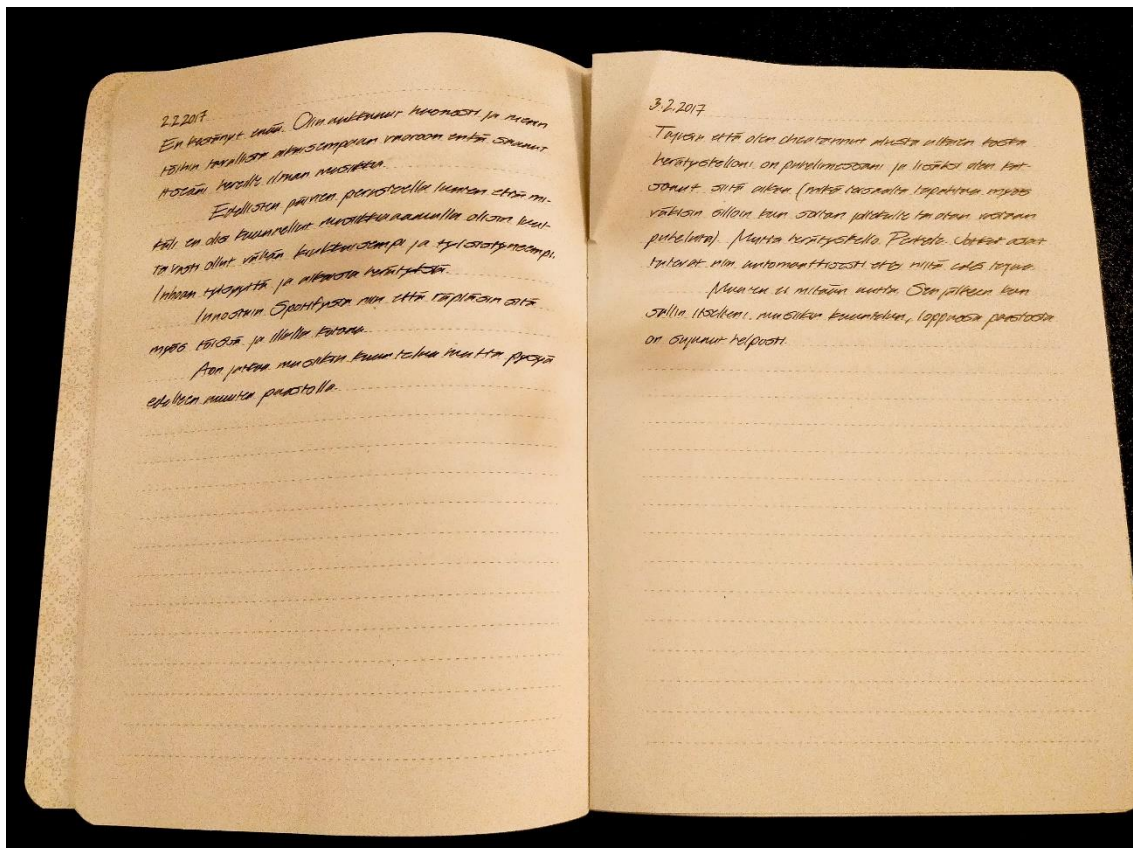 2.2.2017
En kestänyt enää. Olin nukkunut huonosti ja menin
töihin tavallista aikaisempaan vuoroon enkä saanut
itseäni hereille ilman musiikkia.
Edellisten päivien perusteella luulen että mi-
käli en olisi kuunnellut musiikkia aamulla olisin luul-
tavasti ollut vähän kiukkuisempi ja tylsistyneempi.
Inhoan työpäytiä ja aikaista herätyksiä.
Innostuin Spotifysta niin että räpläsin sitä
myös töissä ja illalla kotona.
Aion jatkaa musiikin kuuntelua mutta pysyä
edelleen muuten paastolla.
3.2.2017
Tajusin että olen cheatannut alusta alkaen koska
herätyskelloni on puhelimessani ja lisäksi olen kat-
sonut siitä aikaa (mitä taasaalta tapahtuu myös
väkisin silloin kun soitan jollekulle tai otan vastaan
puheluita). Mutta herätyskello. Perkele. Jotkut asiat
tulevat niin automaattisesti ettei niitä edes tajua.
Muuten ei mitään uutta. Sen jälkeen kun
sallin itselleni musiikin kuuntelun, loppuosa paastosta
on sujunut helposti.